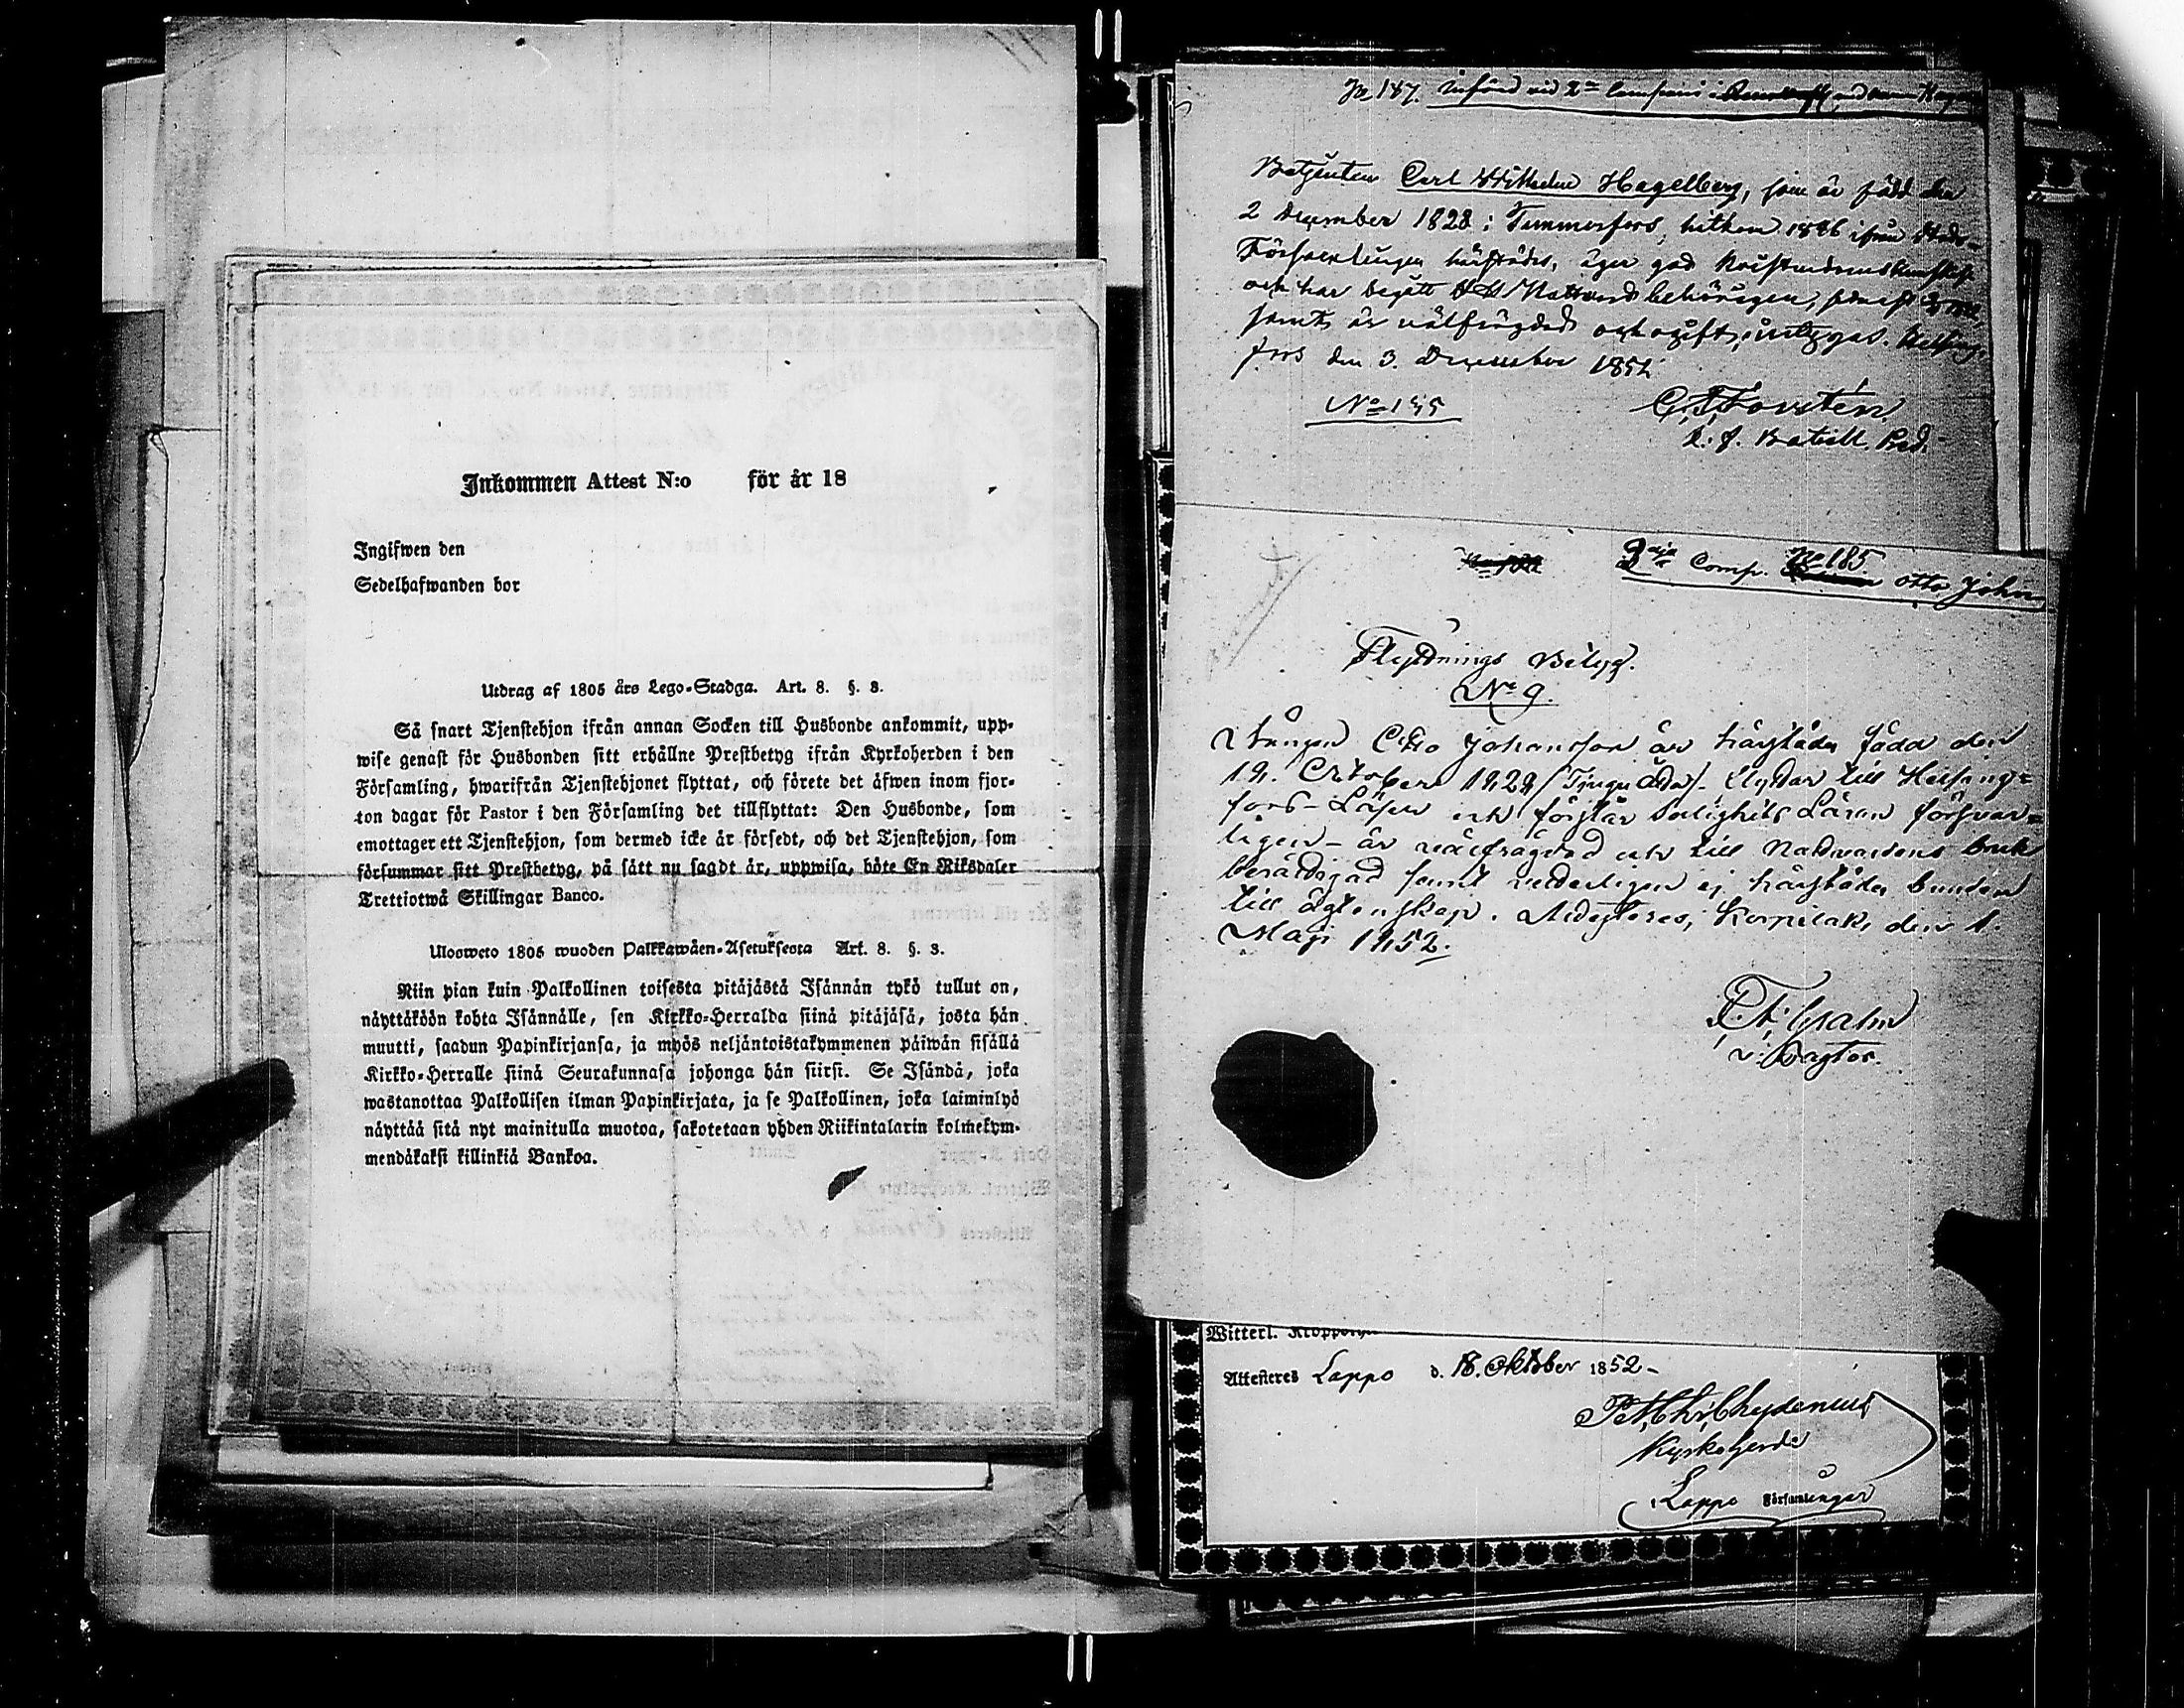 Inkommen Attest N:o för år 18
Ingifwen den
Sedelhafwanden bor
Utdrag af 1805 års Lego-Stadga. Art. 8. §. 3.
Så snart Tjenstehjon ifrån annan Socken till Husbonde ankommit, upp-
wise genast för Husbonden sitt erhållne Prestbetyg ifrån Kyrkoherden i den
Församling, hwarifrån Tjenstehjonet flyttat, och förete det äfwen inom fjor-
ton dagar för Pastor i den Församling det tillflyttat: Den Husbonde, som
emottager ett Tjenstehjon, som dermed icke är försedt, och det Tjenstehjon, som
försummar sitt Prestbetyg, på sätt nu sagdt är, uppwisa, böte En Riksdaler
Trettiotwå Skillingar Banco.
Uloosweto 1805 wuoden Palkkawäen-Asetuksesta Art. 8. §. 3.
Niin pian kuin Palkollinen toisesta pitäjästä Isännän tykö tullut on,
näyttäköön kohta Isännälle, sen Kirkko-Herralda siinä pitäjäsä, josta hän
muutti, saadun Papinkirjansa, ja myös neljäntoistakymmenen päiwän sisällä
Kirkko-Herralle siinä Seurakunnasa johonga hän siirsi. Se Isändä, joka
wastanottaa Palkollisen ilman Papinkirjata, ja se Palkollinen, joka laiminlyö
näyttää sitä nyt mainitulla muotoa, sakotetaan yhden Riikintalarin kolmekym-
mendäkaksi killinkiä Bankoa.
187. införd vid 2 Compani
Carl Wilhelm Hagelberg, som är född den
2 December 1828 i Tammerfors, hitkom 1846 ifrån Stads-
Församlingen härstädes, äger god Kristendomskunskap
och har begått H H Nattvard behörigen,
samt är välfrägdad och ogift, intygas. Helsing-
fors den 3. December 1852
No 155
Forstén
Bataill. Pred.
3dje Comp. No 185 Otto Johan
Flyttnings Betyg.
No 9.
Otto Johansson är härstädes född den
19. October 1829 (Tjugu åtta). Flyttar till Helsing-
fors - Läser och förstår Salighets Läran försvar-
ligen - är välfrägdad och till Nattvardens bruk
berättigad samt veterligen ej härstädes bunden
till äktenskap. Attesteres, Korpilaks den 1.
Maji 1852.
v. Pastor.
Witterl.
Attesteres Lappo d. 18. Oktober 1852 -
Pet. Chr. Chydenius
Kyrkoherde
i Lappo Församlingar